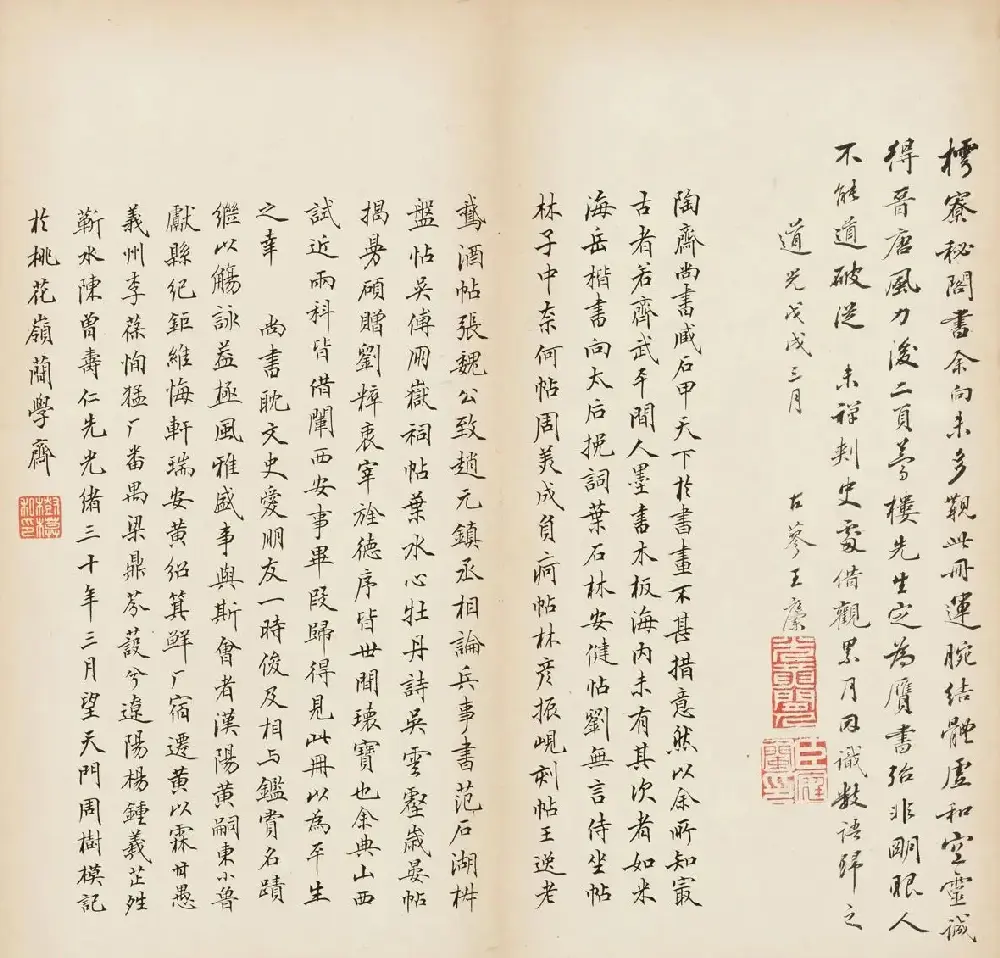 樗寮秘閣書余向未多觀此冊運腕結體虛和空靈誠
得晉唐風力後二頁夢樓先生定為贗書殆非明眼人
不能道破從 未祥刺史處借觀累月因識數語歸之
道光戊戌三月 古蓼王藻
陶齋尚書臧石甲天下於書畫不甚措意然以余所知冣
古者若齊武平間人墨書木板海内未有其次者如米
海岳楷書向太后挽詞葉石林安健帖劉無言侍坐帖
林子中奈何帖周美成負疴帖林彥振峴刻帖王逸老
鵞酒帖張魏公致趙元鎮丞相論兵事書范石湖桝
盤帖吳傅朋嶽祠帖葉水心牡丹詩吳雲壑歲晏帖
楊旻碩贈劉粹衷宰旌德序皆世間瓌寶也余典山西
試近兩科皆借闈西安事畢叚歸得見此冊以為平生
之幸 尚書耽文史愛朋友一時俊及相与鑑賞名蹟
繼以觴詠益極風雅盛事與斯會者漢陽黃嗣東小魯
獻縣紀鉅維悔軒瑞安黃紹箕鮮厂宿遷黃以霖甘愚
義州李葆恂猛厂番禺梁鼎芬葭兮遼陽楊鍾羲芷姓
蘄水陳曾壽仁先光緒三十年三月望天門周樹模記
於桃花嶺蕳學齋